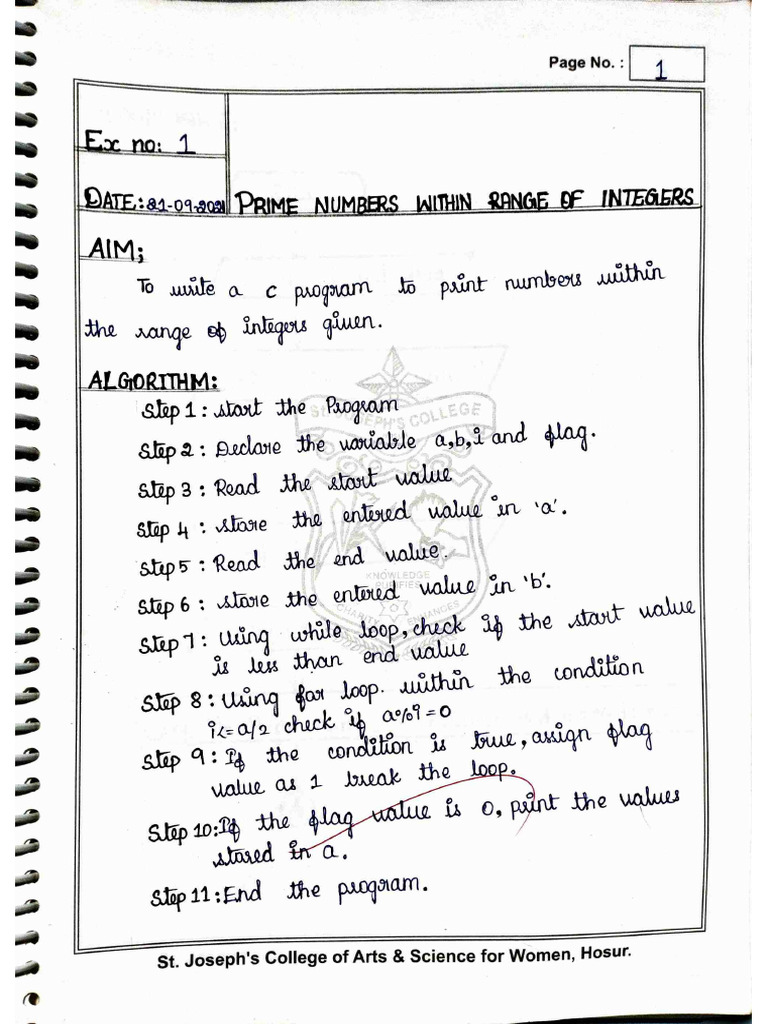 Page No. : 1
Ex no: 1
DATE: 21-09-2021 PRIME NUMBERS WITHIN RANGE OF INTEGERS
AIM;
To write a c program to print numbers within
the range of integers given.
ALGORITHM:
Step 1 : start the Program
Step 2 : Declare the variable a,b,i and flag.
Step 3 : Read the start value
Step 4 : store the entered value in 'a'.
Step 5 : Read the end value.
Step 6 : store the entered value in 'b'.
Step 7 : Using while loop, check if the start value
is less than end value
Step 8 : Using for loop. within the condition
i<=a/2 check if a%i=0
Step 9 : If the condition is true, assign flag
value as 1 break the loop.
Step 10: If the flag value is 0, print the values
stored in a.
Step 11 : End the program.
ST. JOSEPH'S COLLEGE
KNOWLEDGE
PURIFIES
CHARITY ENHANCES
St. Joseph's College of Arts & Science for Women, Hosur.